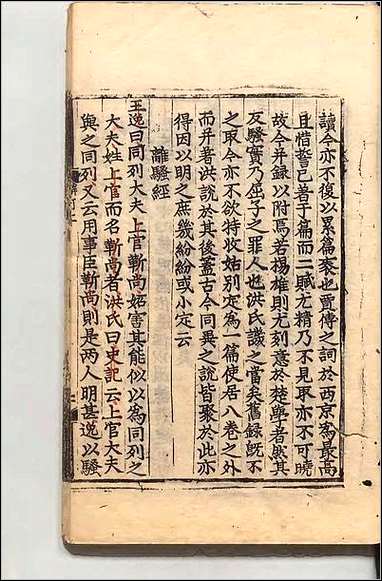 讀今亦不復以累篇袠也賈傳之詞於西京爲最高
且惜誓已著于篇而二賦尤精乃不見取亦不可曉
故今幷録以附焉若揚雄則尤刻意於楚學者然其
反騷實乃屈子之罪人也洪氏譏之當矣舊録旣不
之取今亦不欲特收姑別定爲一篇使居八卷之外
而幷著洪說於其後蓋古今同異之說皆聚於此亦
得因以明之庶幾紛紛或小定云
離騷經
王逸曰同列大夫上官靳尚妬害其能似以爲同列之
大夫姓上官而名靳尚者洪氏曰史記云上官大夫
與之同列又云用事臣靳尚則是兩人明甚逸以騷